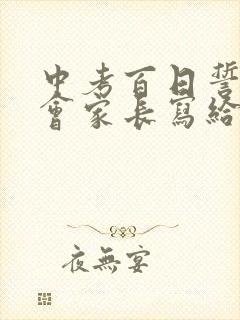 中考百日誓
會家長寫給
夜無宴